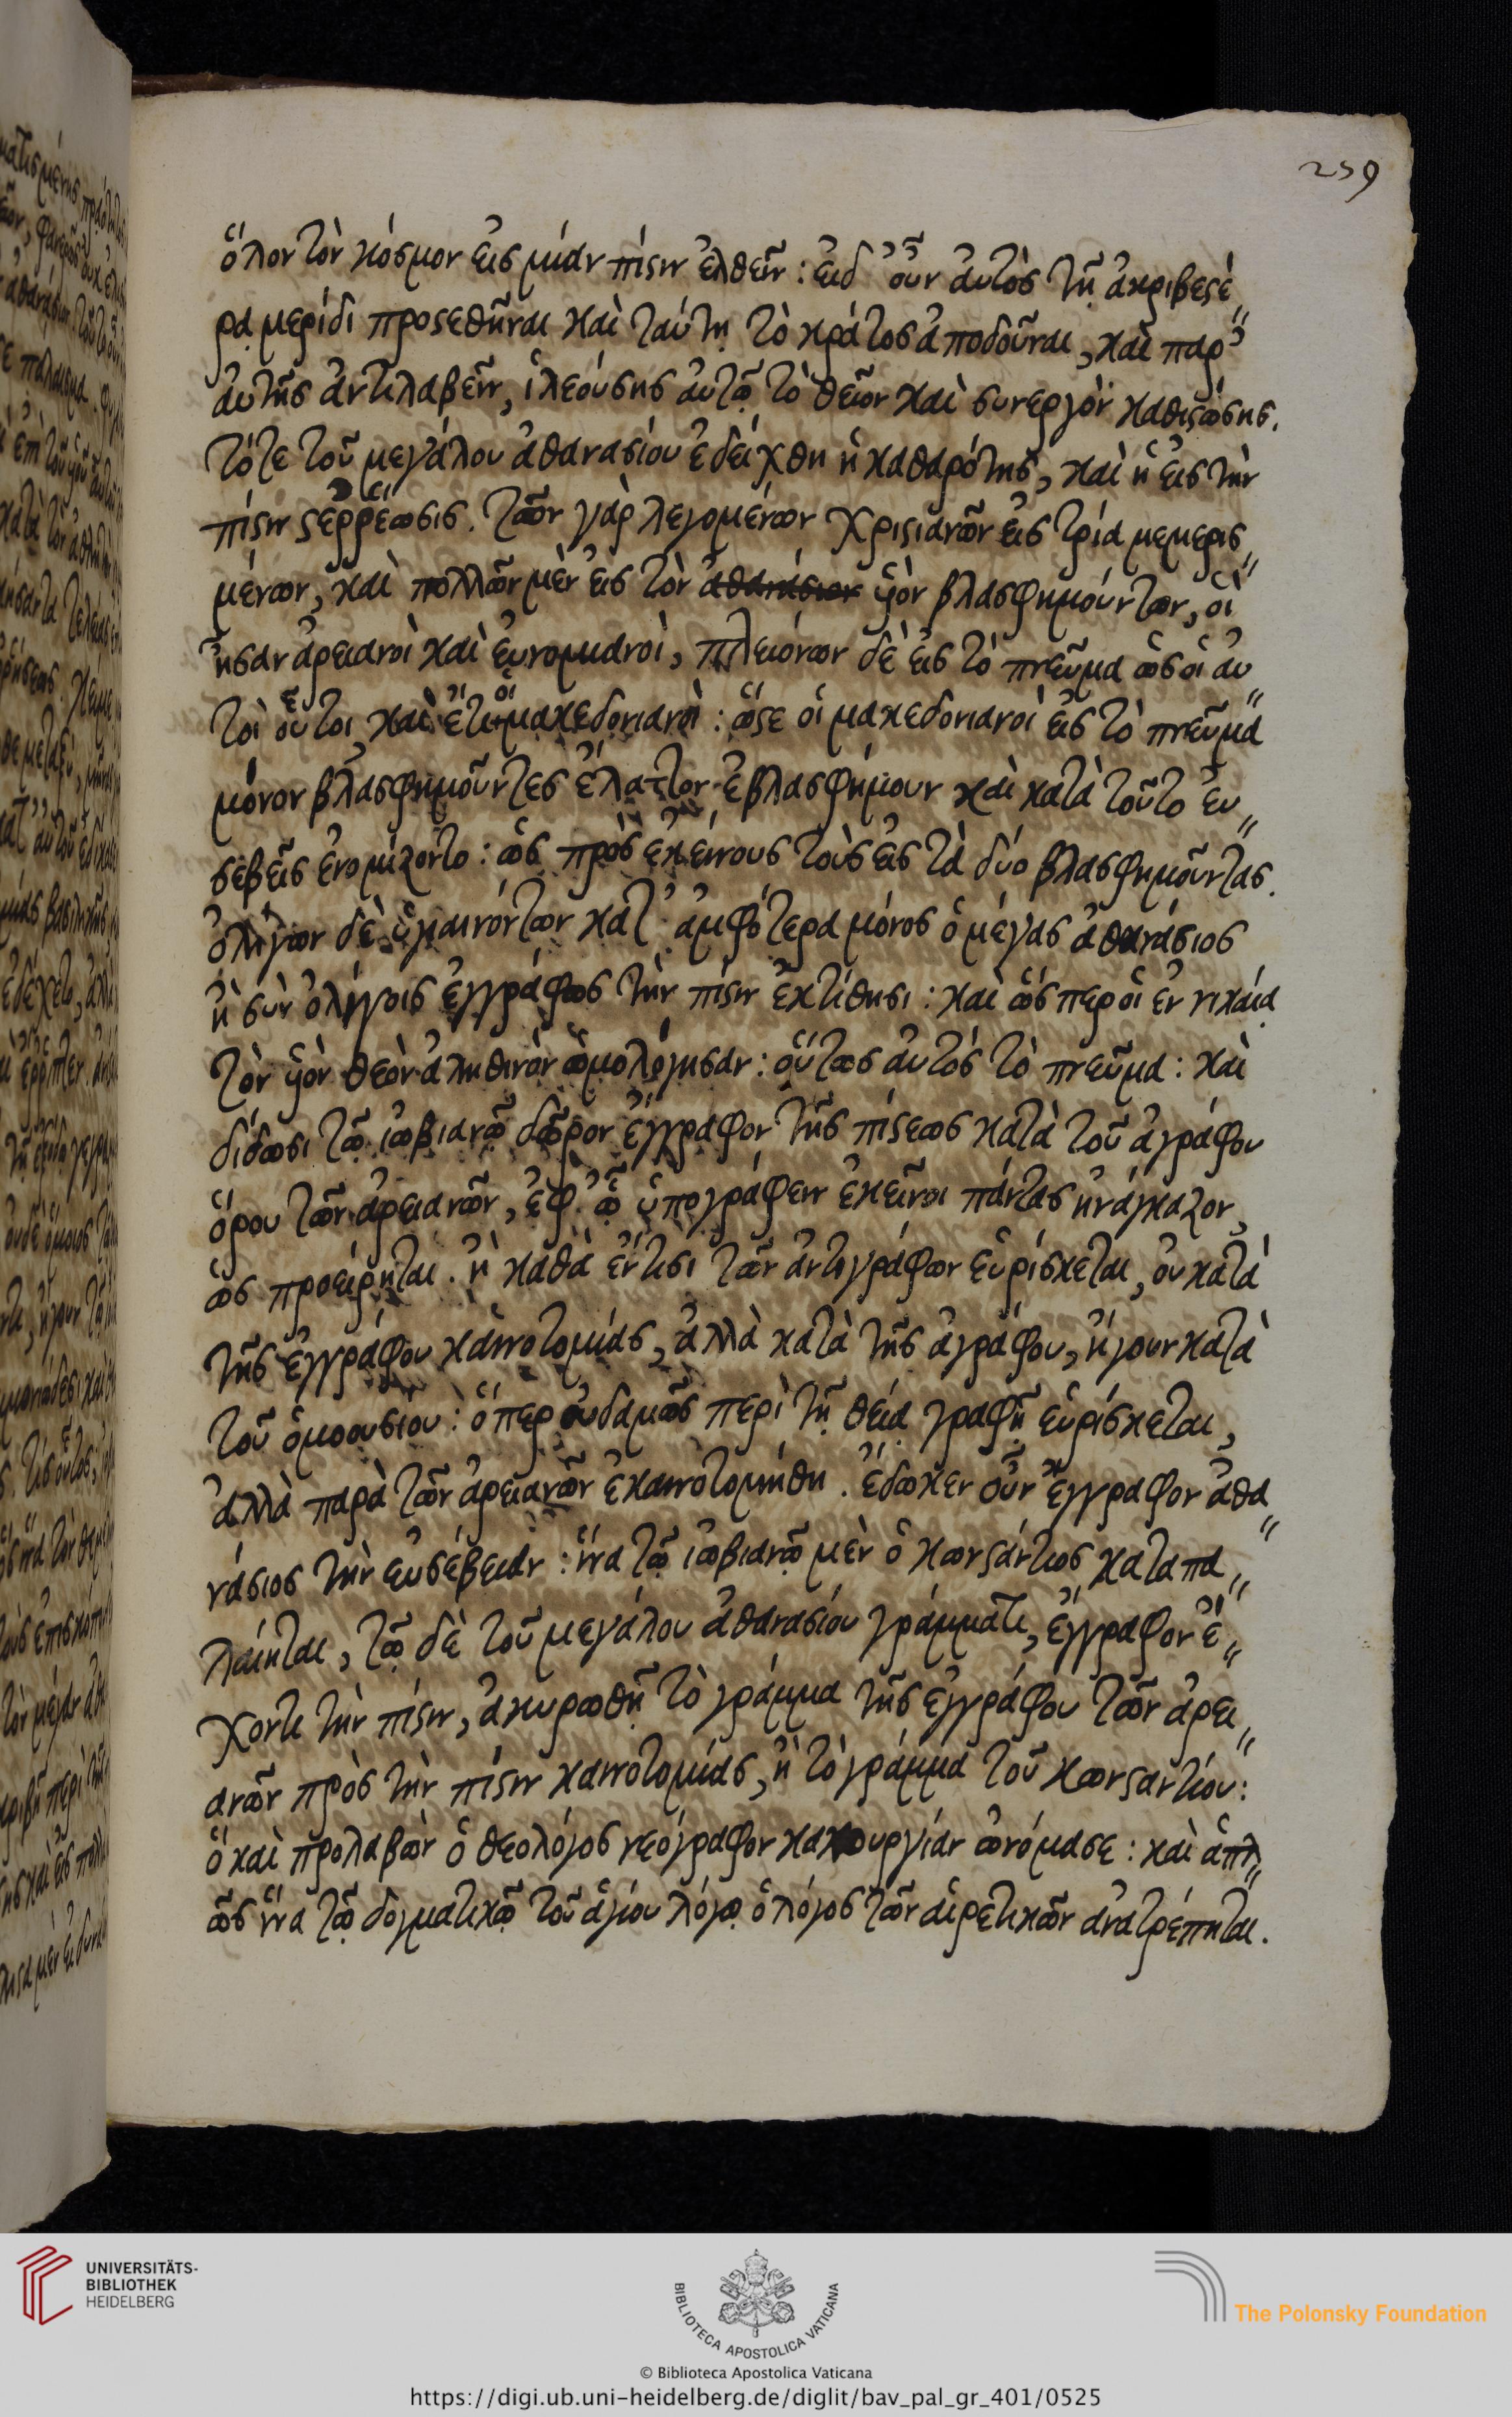 259
ὅλον τὸν κόσμον εἰς μίαν πίστιν ἐλθεῖν: εἰδ᾽ οὖν αὐτὸς τῇ ἀκριβεστέ
ρᾳ μερίδι προστεθῆναι καὶ ταύτῃ τὸ κράτος ἀποδοῦναι, καὶ παρ᾽
αὐτῆς ἀντιλαβεῖν, ἱλεούσης αὐτῷ τὸ θεῖον καὶ συνεργὸν καθιστώσης.
τότε τοῦ μεγάλου ἀθανασίου ἐδείχθη ἡ καθαρότης, καὶ ἡ εἰς τὴν
πίστιν στερρέωσις. τῶν γὰρ λεγομένων χριστιανῶν εἰς τρία μεμερισ
μένων, καὶ πολλῶν μὲν εἰς τὸν ἀθανάσιον υἱὸν βλασφημούντων, οἳ
ἦσαν ἀρειανοὶ καὶ εὐνομιανοὶ, πλειόνων δὲ εἰς τὸ πνεῦμα ὡς οἱ αὐ
τοὶ οὗτοι, καὶ ἔτι οἱ μακεδονιανοὶ: ὥστε οἱ μακεδονιανοὶ εἰς τὸ πνεῦμα
μόνον βλασφημοῦντες ἔλαττον ἐβλασφήμουν καὶ κατὰ τοῦτο εὐ
σεβεῖς ἐνομίζοντο: ὡς πρὸς ἐκείνους τοὺς εἰς τὰ δύο βλασφημοῦντας.
ὀλίγων δὲ ὑγιαινόντων κατ᾽ ἀμφότερα μόνος ὁ μέγας ἀθανάσιος
ἢ σὺν ὀλίγοις ἐγγράφως τὴν πίστιν ἐκτίθησι: καὶ ὥσπερ οἱ ἐν νικαίᾳ
τὸν υἱὸν θεὸν ἀληθινὸν ὡμολόγησαν: οὕτως αὐτὸς τὸ πνεῦμα: καὶ
δίδωσι τῷ ἰωβιανῷ δῶρον ἔγγραφον τῆς πίστεως κατὰ τοῦ ἀγράφου
ὅρου τῶν ἀρειανῶν, ἐφ᾽ ᾧ ὑπογράφειν ἐκεῖνοι πάντας ἠνάγκαζον,
ὡς προείρηται. ἢ καθὰ ἔν τισι τῶν ἀντιγράφων εὑρίσκεται, οὐ κατὰ
τῆς ἐγγράφου καινοτομίας, ἀλλὰ κατὰ τῆς ἀγράφου, ἤγουν κατὰ
τοῦ ὁμοουσίου: ὅπερ οὐδαμῶς περὶ τῇ θείᾳ γραφῇ εὑρίσκεται,
ἀλλὰ παρὰ τῶν ἀρειανῶν ἐκαινοτομήθη. ἔδωκεν οὖν ἔγγραφον ἀθα
νάσιος τὴν εὐσέβειαν: ἵνα τῷ ἰωβιανῷ μὲν ὁ κωνστάντιος καταπα
λαίηται, τῷ δὲ τοῦ μεγάλου ἀθανασίου γράμματι, ἔγγραφον ἔ
χοντι τὴν πίστιν, ἀκυρωθῇ τὸ γράμμα τῆς ἐγγράφου τῶν ἀρει
ανῶν πρὸς τὴν πίστιν καινοτομίας, ἢ τὸ γράμμα τοῦ κωνσταντίου:
ὃ καὶ προλαβὼν ὁ θεολόγος νεόγραφον κακουργίαν ὠνόμασε: καὶ ἁπλ
ῶς ἵνα τῷ δογματικῷ τοῦ ἁγίου λόγῳ ὁ λόγος τῶν αἱρετικῶν ἀνατρέπηται.
UNIVERSITÄTS-
BIBLIOTHEK
HEIDELBERG
BIBLIOTECA APOSTOLICA VATICANA
© Biblioteca Apostolica Vaticana
The Polonsky Foundation
https://digi.ub.uni-heidelberg.de/diglit/bav_pal_gr_401/0525